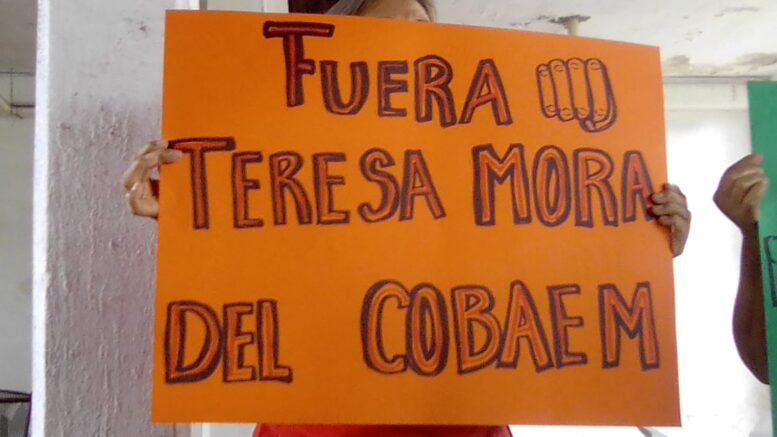 FUERA
TERESA MORA
DEL COBAEM